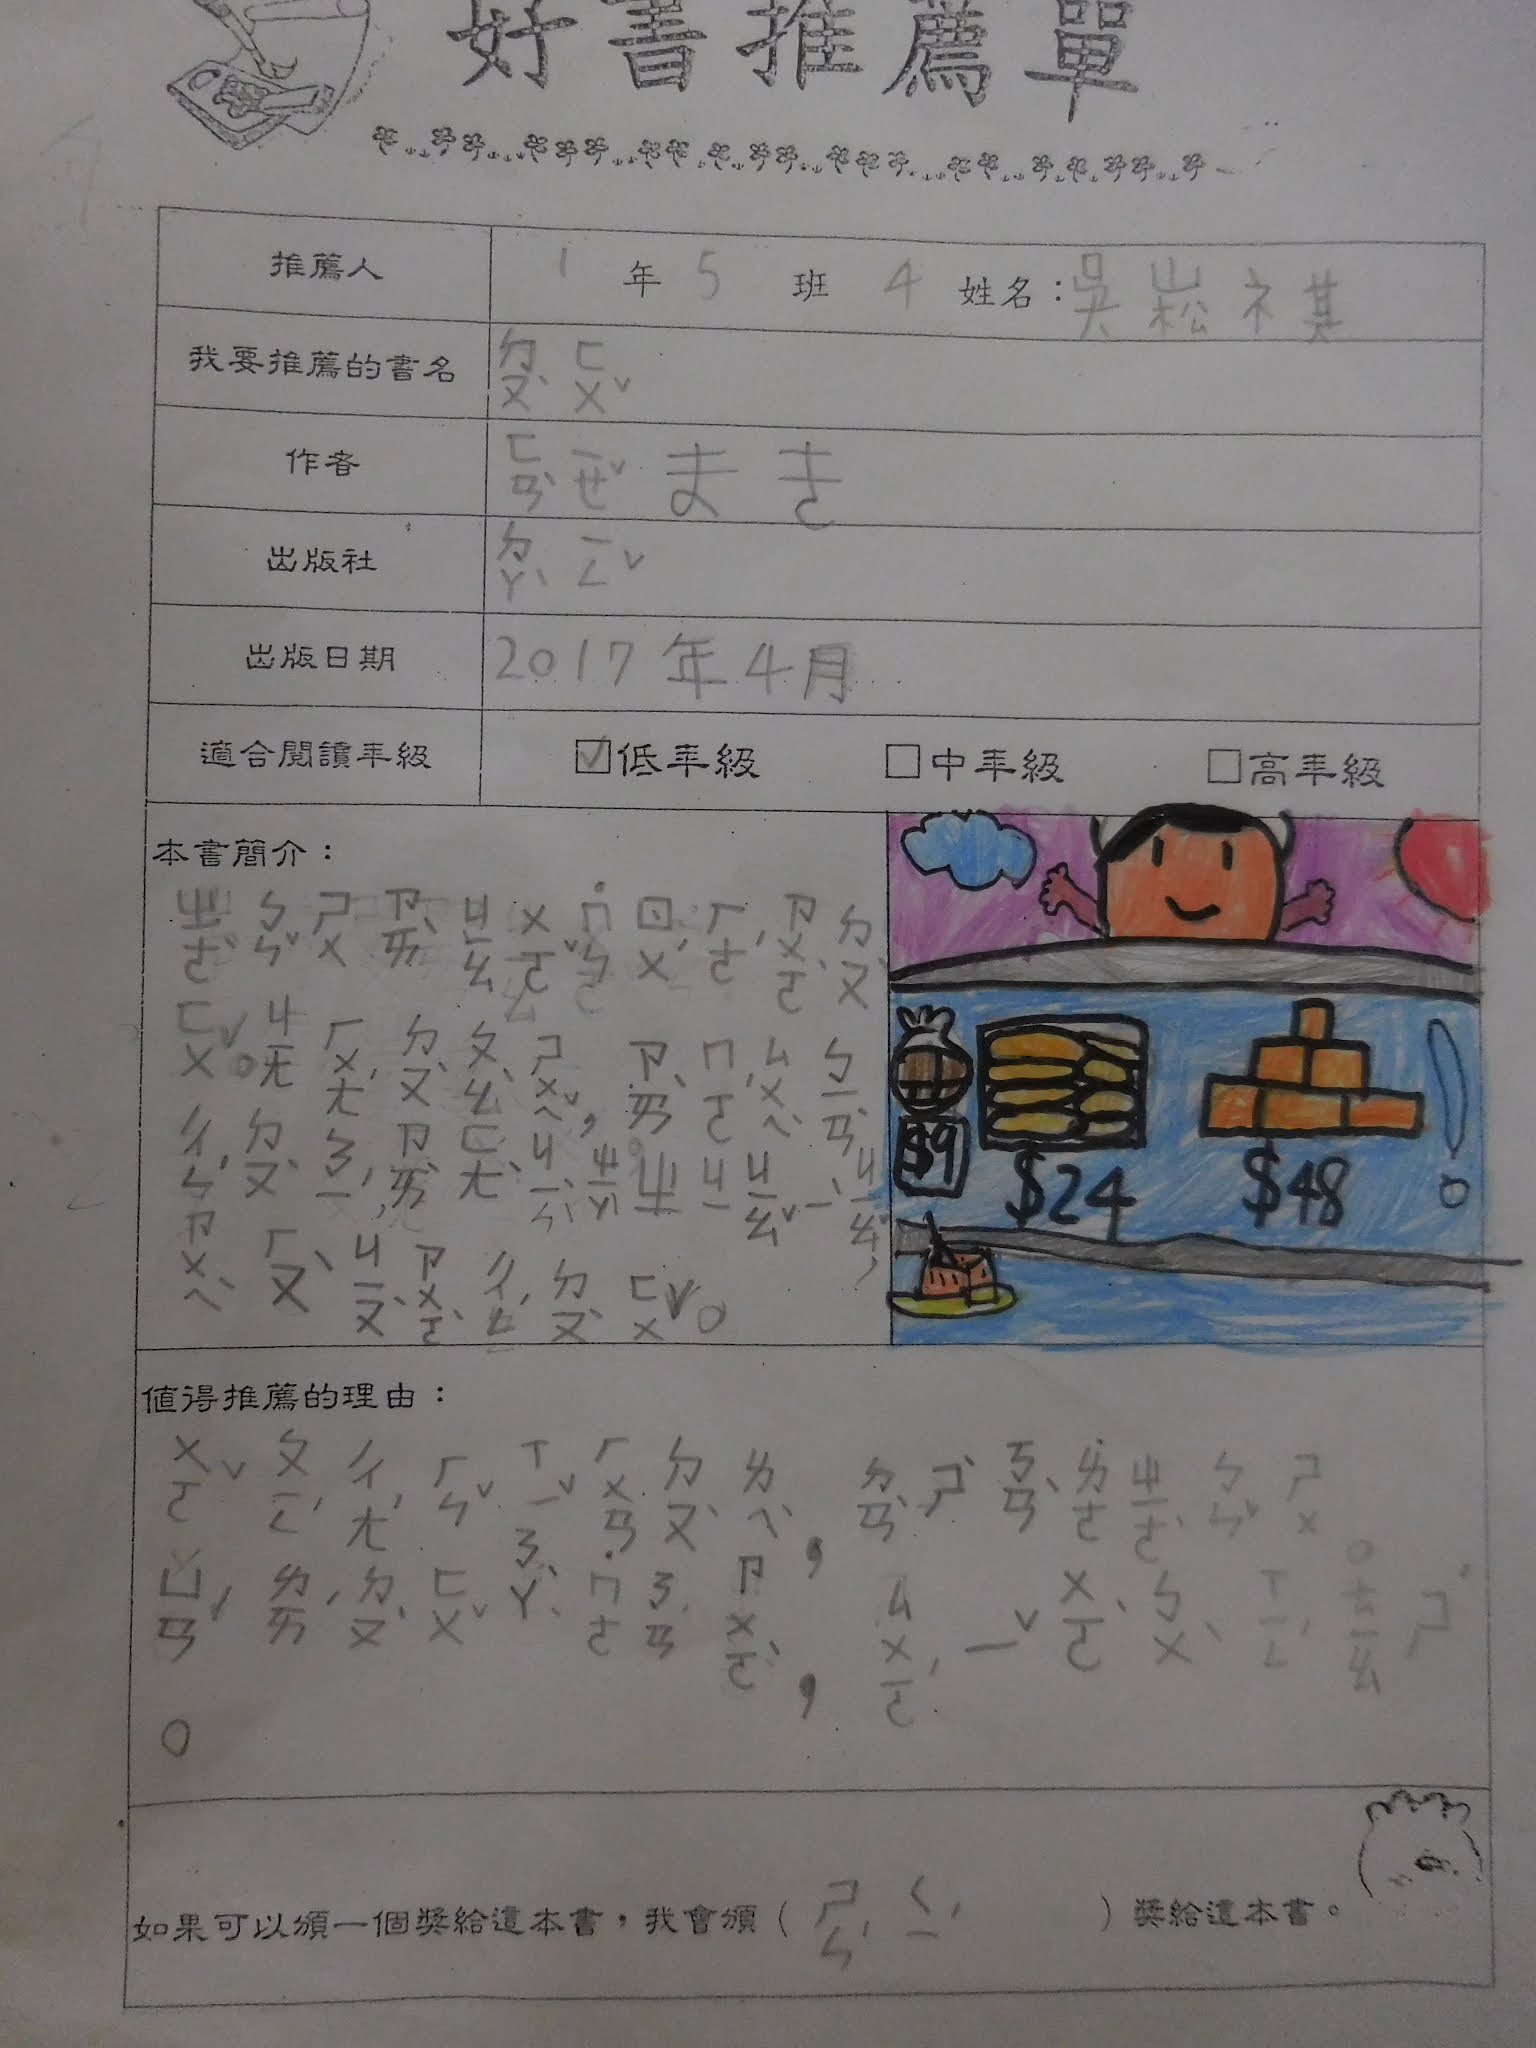 好書推薦單
推薦人 1年5班 4 姓名：吳崧祺
我要推薦的書名 ㄉㄡˋ ㄈㄨˇ
作者 ㄈㄢˋ ㄧㄝˇ まき
出版社 ㄉㄚˋ ㄧㄥˇ
出版日期 2017年4月
適合閱讀年級 ☑低年級 □中年級 □高年級
本書簡介：
ㄓㄜˋ ㄅㄣˇ ㄕㄨ ㄗㄞˋ ㄐㄧㄠ ㄨㄛˇ ˙ㄇㄣ ㄖㄨˊ ㄏㄜˊ ㄗㄨㄛˋ ㄉㄡˋ
ㄈㄨˇ。ㄏㄨㄤˊ ㄉㄡˋ ㄆㄠˋ ㄕㄨㄟˇ，ㄗㄞˋ ㄇㄛˊ ㄙㄨㄟˋ ㄅㄧㄢˋ
ㄔㄣˊ ㄉㄡˋ ㄋㄧˊ，ㄗㄞˋ ㄈㄤˋ ㄐㄧㄣˋ ㄓㄚˋ ㄓ ㄐㄧ ㄐㄧㄠˇ ㄧˋ ㄐㄧㄠˇ，
ㄗㄨㄟˋ ㄏㄡˋ ㄐㄧㄡˋ ㄗㄨㄛˋ ㄔㄥˊ ㄉㄡˋ ㄈㄨˇ。
$9 $24 $48
值得推薦的理由：
ㄨㄛˇ ㄆㄥˊ ㄔㄤˊ ㄏㄣˇ ㄒㄧˇ ㄏㄨㄢ ㄉㄡˋ ㄌㄟˋ，ㄉㄢˋ ㄕˋ ㄎㄢˋ ˙ㄌㄜ ㄓㄜˋ ㄅㄣˇ ㄕㄨ。
ㄩㄢˊ ㄌㄞˊ ㄉㄡˋ ㄈㄨˇ ㄋㄚˋ ˙ㄇㄜ ㄋㄢˊ ㄗㄨㄛˋ，ㄙㄨㄛˊ ㄧˇ ㄨㄛˋ ㄅㄨˋ ㄒㄧㄥˊ ㄊㄧㄠ ㄕˊ
。
如果可以頒一個獎給這本書，我會頒（ㄕㄣˊ ㄑㄧˊ）獎給這本書。